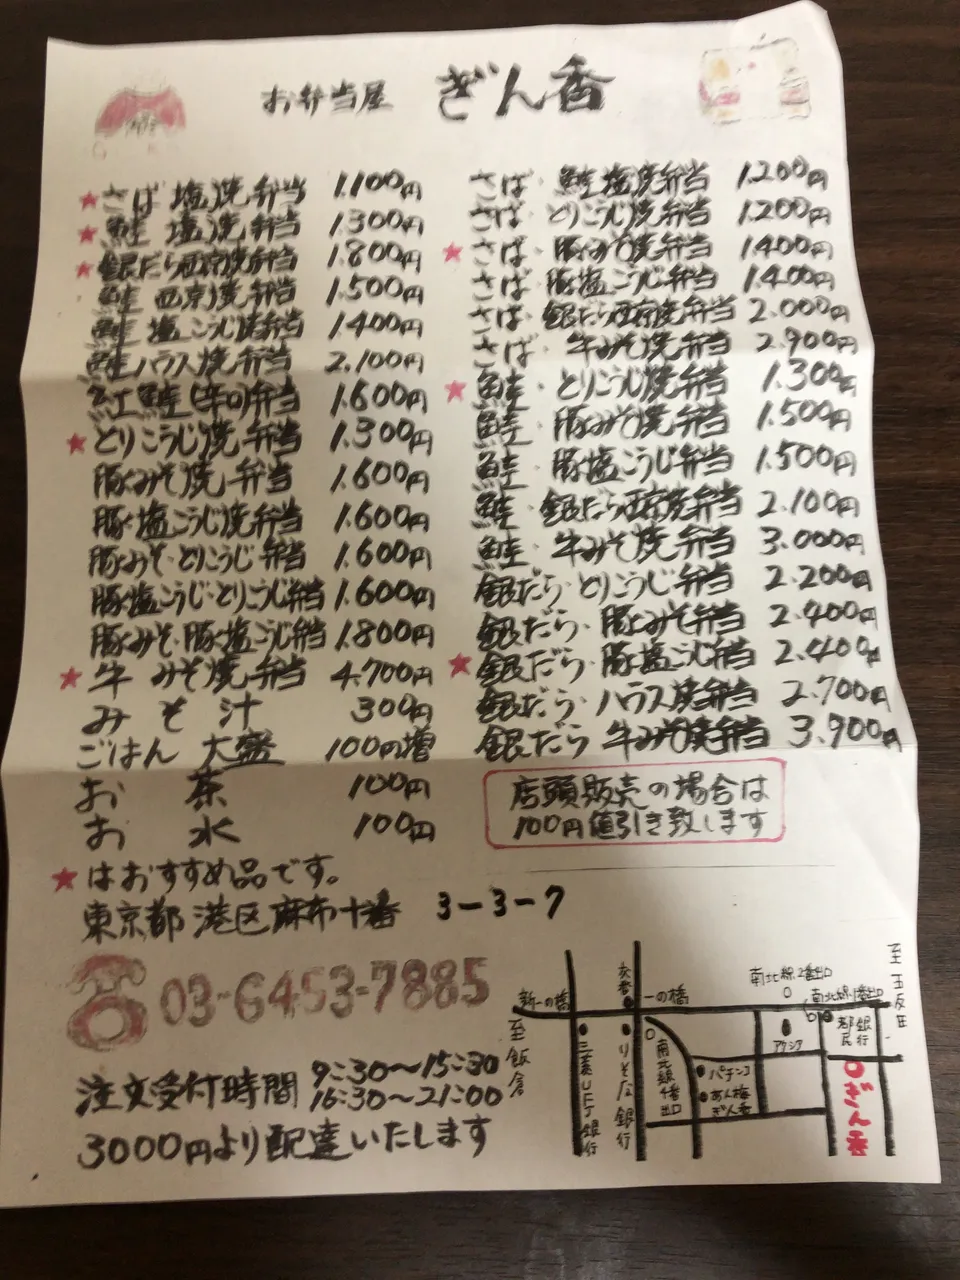 お弁当屋 ぎん香
★さば 塩焼弁当 1.100円
★鮭 塩焼弁当 1.300円
★銀だら西京焼弁当 1.800円
鮭 西京焼弁当 1.500円
鮭 塩こうじ焼弁当 1.400円
鮭ハラス焼弁当 2.100円
紅鮭(辛口)弁当 1.600円
★とりこうじ焼弁当 1.300円
豚みそ焼弁当 1.600円
豚塩こうじ焼弁当 1.600円
豚みそ・とりこうじ弁当 1.600円
豚塩こうじ・とりこうじ弁当 1.600円
豚みそ・豚塩こうじ弁当 1.800円
★牛みそ焼弁当 4.700円
みそ汁 300円
ごはん 大盛 100円増
お茶 100円
お水 100円
さば・鮭塩焼弁当 1.200円
さば・とりこうじ焼弁当 1.200円
★さば・豚みそ焼弁当 1.400円
さば・豚塩こうじ弁当 1.400円
さば・銀だら西京焼弁当 2.000円
さば・牛みそ焼弁当 2.900円
★鮭・とりこうじ焼弁当 1.300円
鮭・豚みそ焼弁当 1.500円
鮭・豚塩こうじ弁当 1.500円
鮭・銀だら西京焼弁当 2.100円
鮭・牛みそ焼弁当 3.000円
銀だら・とりこうじ弁当 2.200円
銀だら・豚みそ弁当 2.400円
★銀だら・豚塩こうじ弁当 2.400円
銀だら・ハラス焼弁当 2.700円
銀だら 牛みそ焼弁当 3.900円
店頭販売の場合は
100円値引き致します
★はおすすめ品です。
東京都 港区 麻布十番 3-3-7
03-6453-7885
注文受付時間 9:30〜15:30
16:30〜21:00
3000円より配達いたします
至飯倉
新一の橋
三菱UFJ銀行
交番
一の橋
りそな銀行
南北線4番出口
南北線2番出口
南北線1番出口
至五反田
パチンコ
あん梅
ぎん香
都民銀行
ぎん香